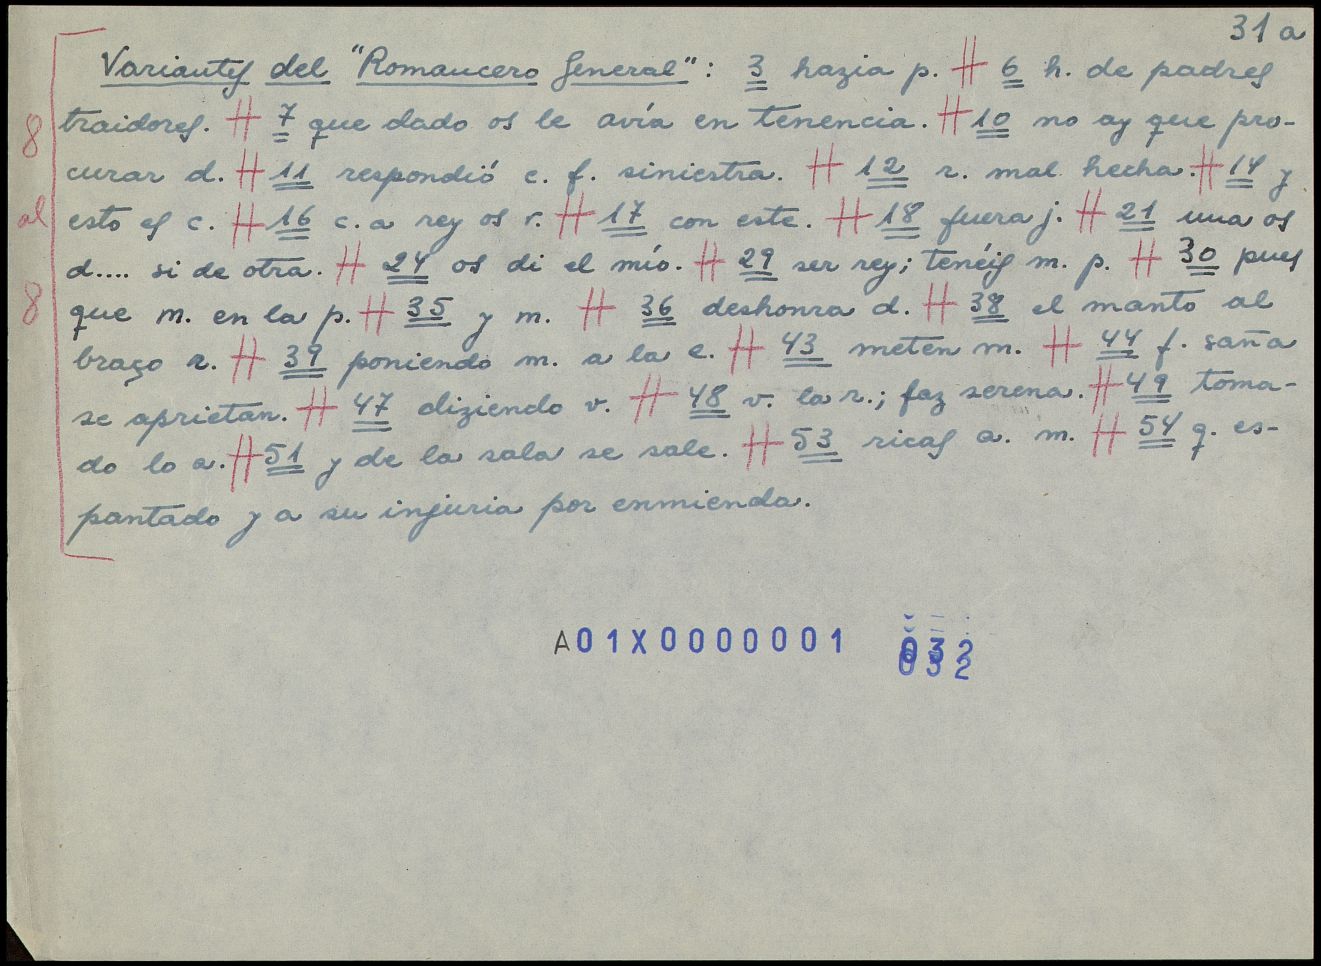 31 a
Variantes del "Romancero General": 3 hazia p. # 6 h. de padres
traidores. # 7 que dado os le avía en tenencia. # 10 no ay que pro-
8 curar d. # 11 respondió c. f. siniestra. # 12 r. mal hecha. # 14 y
al esto es c. # 16 c. a rey os r. # 17 con este. # 18 fuera j. # 21 una os
d.... si de otra. # 24 os di el mío. # 29 ser rey; tenéis m. p. # 30 pues
8 que m. en la p. # 35 y m. # 36 deshonra d. # 38 el manto al
braço r. # 39 poniendo m. a la e. # 43 meten m. # 44 f. saña
se aprietan. # 47 diziendo v. # 48 v. la r.; faz serena. # 49 toma-
do lo a. # 51 y de la sala se sale. # 53 ricas a. m. # 54 q. es-
pantado y a su injuria por enmienda.
A01X0000001 032